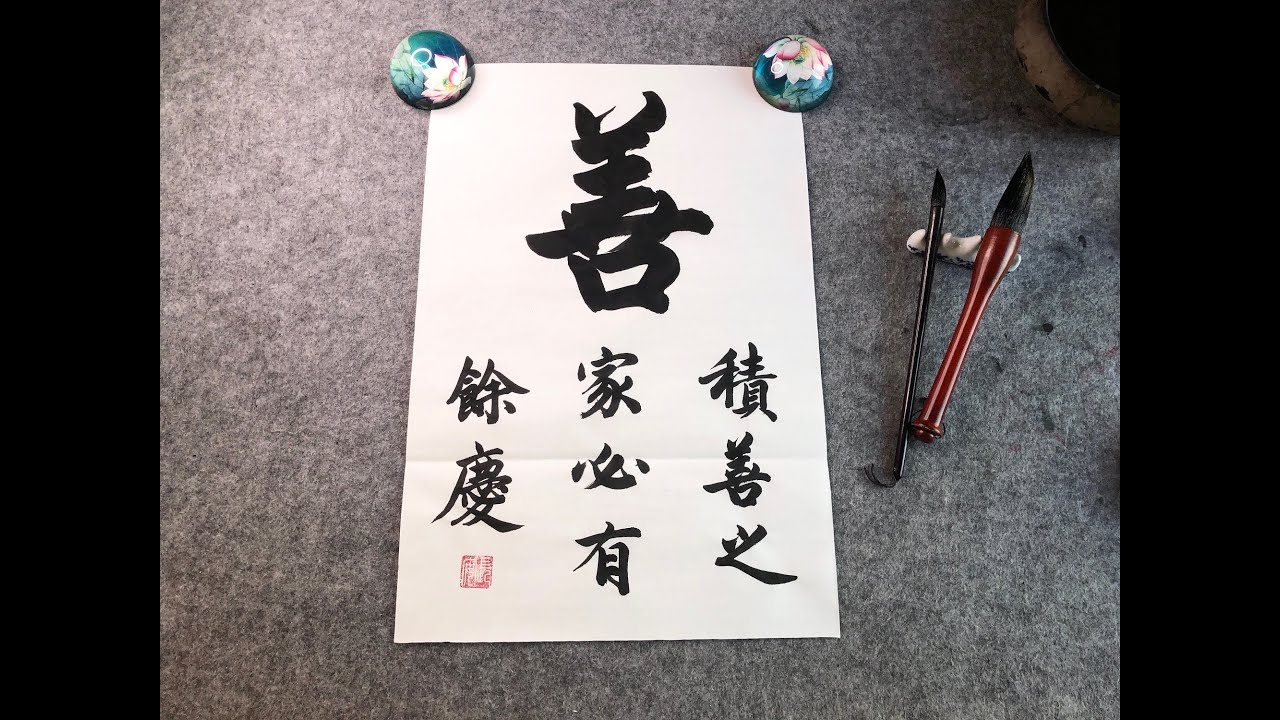 善
積善之
家必有
餘慶